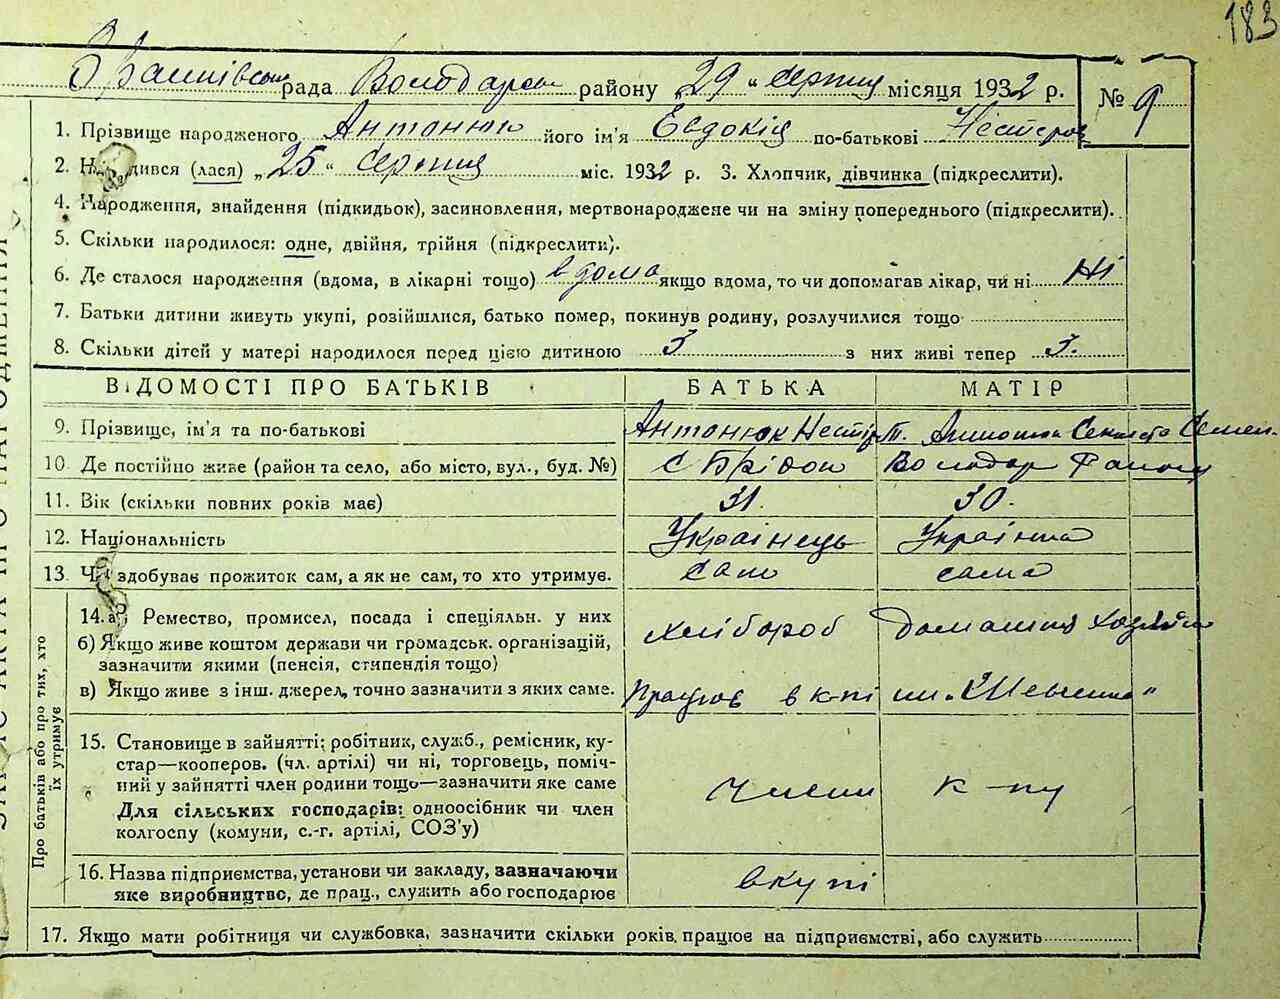 183
рада Володарськ району „29" серпня місяця 1932 р. № 9
1. Прізвище народженого Антонюк його ім'я Евдокія по-батькові Нестеров
2. Народився (лася) „25" серпня міс. 1932 р. 3. Хлопчик, дівчинка (підкреслити).
4. Народження, знайдення (підкидьок), засиновлення, мертвонароджене чи на зміну попереднього (підкреслити).
5. Скільки народилося: одне, двійня, трійня (підкреслити).
6. Де сталося народження (вдома, в лікарні тощо) вдома якщо вдома, то чи допомагав лікар, чи ні Ні
7. Батьки дитини живуть укупі, розійшлися, батько помер, покинув родину, розлучилися тощо
8. Скільки дітей у матері народилося перед цією дитиною 3 з них живі тепер 3.
ВІДОМОСТІ ПРО БАТЬКІВ БАТЬКА МАТІР
9. Прізвище, ім'я та по-батькові Антонюк Нестір Т. Семен.
10. Де постійно живе (район та село, або місто, вул., буд. №) с Володар Району
11. Вік (скільки повних років має) 31. 30.
12. Національність Украінець Украінка
13. Чи здобуває прожиток сам, а як не сам, то хто утримує. сам сама
ЗАПИС АКТА ПРО НАРОДЖЕННЯ
Про батьків або про тих, хто їх утримує
14. а) Ремество, промисел, посада і спеціяльн. у них хлібороб Домашня хозяйк
б) Якщо живе коштом держави чи громадськ. організацій,
зазначити якими (пенсія, стипендія тощо)
в) Якщо живе з інш. джерел, точно зазначити з яких саме. Працюв в к-пі им. „Шевченка"
15. Становище в зайнятті: робітник, служб., ремісник, ку-
стар—кооперов. (чл. артілі) чи ні, торговець, поміч-
ний у зайнятті член родини тощо—зазначити яке саме Члени к-пу
Для сільських господарів: одноосібник чи член
колгоспу (комуни, с.-г. артілі, СОЗ'у)
16. Назва підприємства, установи чи закладу, зазначаючи
яке виробництво, де прац., служить або господарює вкупі
17. Якщо мати робітниця чи службовка, зазначити скільки років працює на підприємстві, або служить